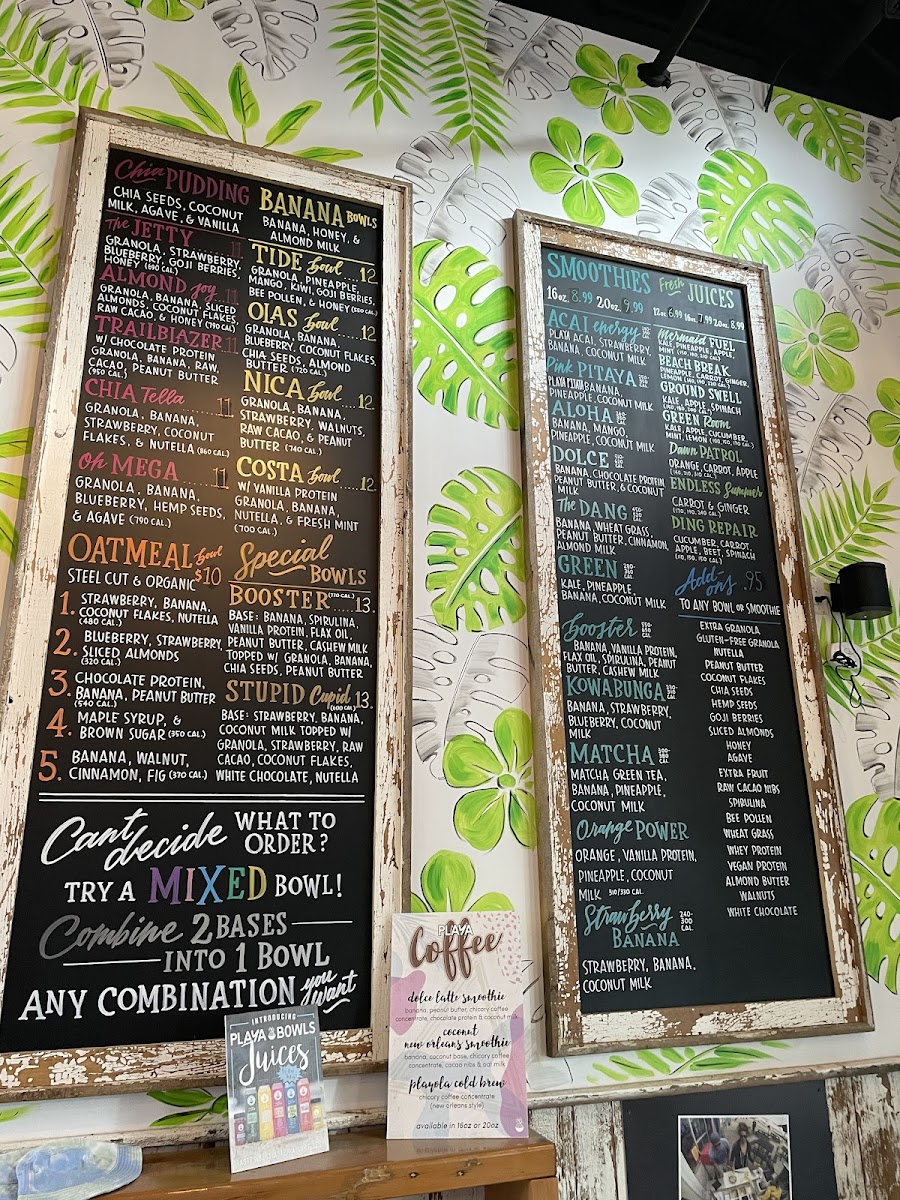 Chia PUDDING
CHIA SEEDS, COCONUT
MILK, AGAVE, & VANILLA
The JETTY ...... 11
GRANOLA, STRAWBERRY,
BLUEBERRY, GOJI BERRIES,
HONEY (690 CAL.)
ALMOND Joy .. 11
GRANOLA, BANANA, SLICED
ALMONDS, COCONUT FLAKES,
RAW CACAO, & HONEY (790 CAL)
TRAILBLAZER 11
W/ CHOCOLATE PROTEIN
GRANOLA, BANANA, RAW,
CACAO, PEANUT BUTTER
(950 CAL.)
CHIA Tella ...... 11
GRANOLA, BANANA,
STRAWBERRY, COCONUT
FLAKES, & NUTELLA (860 CAL.)
Oh MEGA ...... 11
GRANOLA, BANANA,
BLUEBERRY, HEMP SEEDS,
& AGAVE (790 CAL.)
OATMEAL Bowl
STEEL CUT & ORGANIC $10
1. STRAWBERRY, BANANA,
COCONUT FLAKES, NUTELLA
(480 CAL.)
2. BLUEBERRY, STRAWBERRY,
SLICED ALMONDS
(320 CAL.)
3. CHOCOLATE PROTEIN,
BANANA, PEANUT BUTTER
(540 CAL.)
4. MAPLE SYRUP, &
BROWN SUGAR (350 CAL.)
5. BANANA, WALNUT,
CINNAMON, FIG (370 CAL.)
BANANA BOWLS
BANANA, HONEY, &
ALMOND MILK
TIDE Bowl ... 12
GRANOLA, PINEAPPLE,
MANGO, KIWI, GOJI BERRIES,
BEE POLLEN, & HONEY (550 CAL.)
OIAS Bowl ... 12
GRANOLA, BANANA,
BLUEBERRY, COCONUT FLAKES,
CHIA SEEDS, ALMOND
BUTTER (720 CAL.)
NICA Bowl ... 12
GRANOLA, BANANA,
STRAWBERRY, WALNUTS,
RAW CACAO, & PEANUT
BUTTER (740 CAL.)
COSTA Bowl ... 12
W/ VANILLA PROTEIN
GRANOLA, BANANA,
NUTELLA, & FRESH MINT
(700 CAL.)
Special
BOWLS
BOOSTER (770 CAL.) ..... 13
BASE: BANANA, SPIRULINA,
VANILLA PROTEIN, FLAX OIL,
PEANUT BUTTER, CASHEW MILK
TOPPED W/ GRANOLA, BANANA,
CHIA SEEDS, PEANUT BUTTER
STUPID Cupid . 13
(600 CAL.)
BASE: STRAWBERRY, BANANA,
COCONUT MILK TOPPED W/
GRANOLA, STRAWBERRY, RAW
CACAO, COCONUT FLAKES,
WHITE CHOCOLATE, NUTELLA
Cant decide WHAT TO
ORDER?
TRY A MIXED BOWL!
Combine 2 BASES
INTO 1 BOWL
ANY COMBINATION you want
SMOOTHIES
16oz. 8.99 20oz. 9.99
ACAI energy
PLAYA ACAI, STRAWBERRY,
BANANA, COCONUT MILK
Pink PITAYA
PLAYA PITAYA BANANA,
PINEAPPLE, COCONUT MILK
ALOHA
BANANA, MANGO,
PINEAPPLE, COCONUT MILK
DOLCE
BANANA, CHOCOLATE PROTEIN
PEANUT BUTTER, & COCONUT
MILK
The DANG
BANANA, WHEAT GRASS,
PEANUT BUTTER, CINNAMON,
ALMOND MILK
GREEN
KALE, PINEAPPLE,
BANANA, COCONUT MILK
Booster
BANANA, VANILLA PROTEIN,
FLAX OIL, SPIRULINA, PEANUT
BUTTER, CASHEW MILK
KOWABUNGA
BANANA, STRAWBERRY,
BLUEBERRY, COCONUT
MILK
MATCHA
MATCHA GREEN TEA,
BANANA, PINEAPPLE,
COCONUT MILK
Orange POWER
ORANGE, VANILLA PROTEIN,
PINEAPPLE, COCONUT
MILK 310/330 CAL.
Strawberry
BANANA 240-300 CAL.
STRAWBERRY, BANANA,
COCONUT MILK
Fresh JUICES
12oz. 6.99 16oz. 7.99 20oz. 8.99
Mermaid FUEL
KALE, PINEAPPLE, APPLE,
MINT
BEACH BREAK
PINEAPPLE, CARROT, GINGER,
LEMON
GROUND SWELL
KALE, APPLE, SPINACH
GREEN Room
KALE, APPLE, CUCUMBER,
MINT, LEMON
Dawn PATROL
ORANGE, CARROT, APPLE
ENDLESS Summer
CARROT & GINGER
DING REPAIR
CUCUMBER, CARROT,
APPLE, BEET, SPINACH
Add ons .95
TO ANY BOWL OR SMOOTHIE
EXTRA GRANOLA
GLUTEN-FREE GRANOLA
NUTELLA
PEANUT BUTTER
COCONUT FLAKES
CHIA SEEDS
HEMP SEEDS
GOJI BERRIES
SLICED ALMONDS
HONEY
AGAVE
EXTRA FRUIT
RAW CACAO NIBS
SPIRULINA
BEE POLLEN
WHEAT GRASS
WHEY PROTEIN
VEGAN PROTEIN
ALMOND BUTTER
WALNUTS
WHITE CHOCOLATE
INTRODUCING
PLAYA BOWLS
Juices
PLAYA
Coffee
dolce latte smoothie
banana, peanut butter, chicory coffee
concentrate, chocolate protein & coconut milk
coconut
new orleans smoothie
banana, coconut base, chicory coffee
concentrate, cacao nibs & oat milk
playola cold brew
chicory coffee concentrate
(new orleans style)
available in 16oz or 20oz